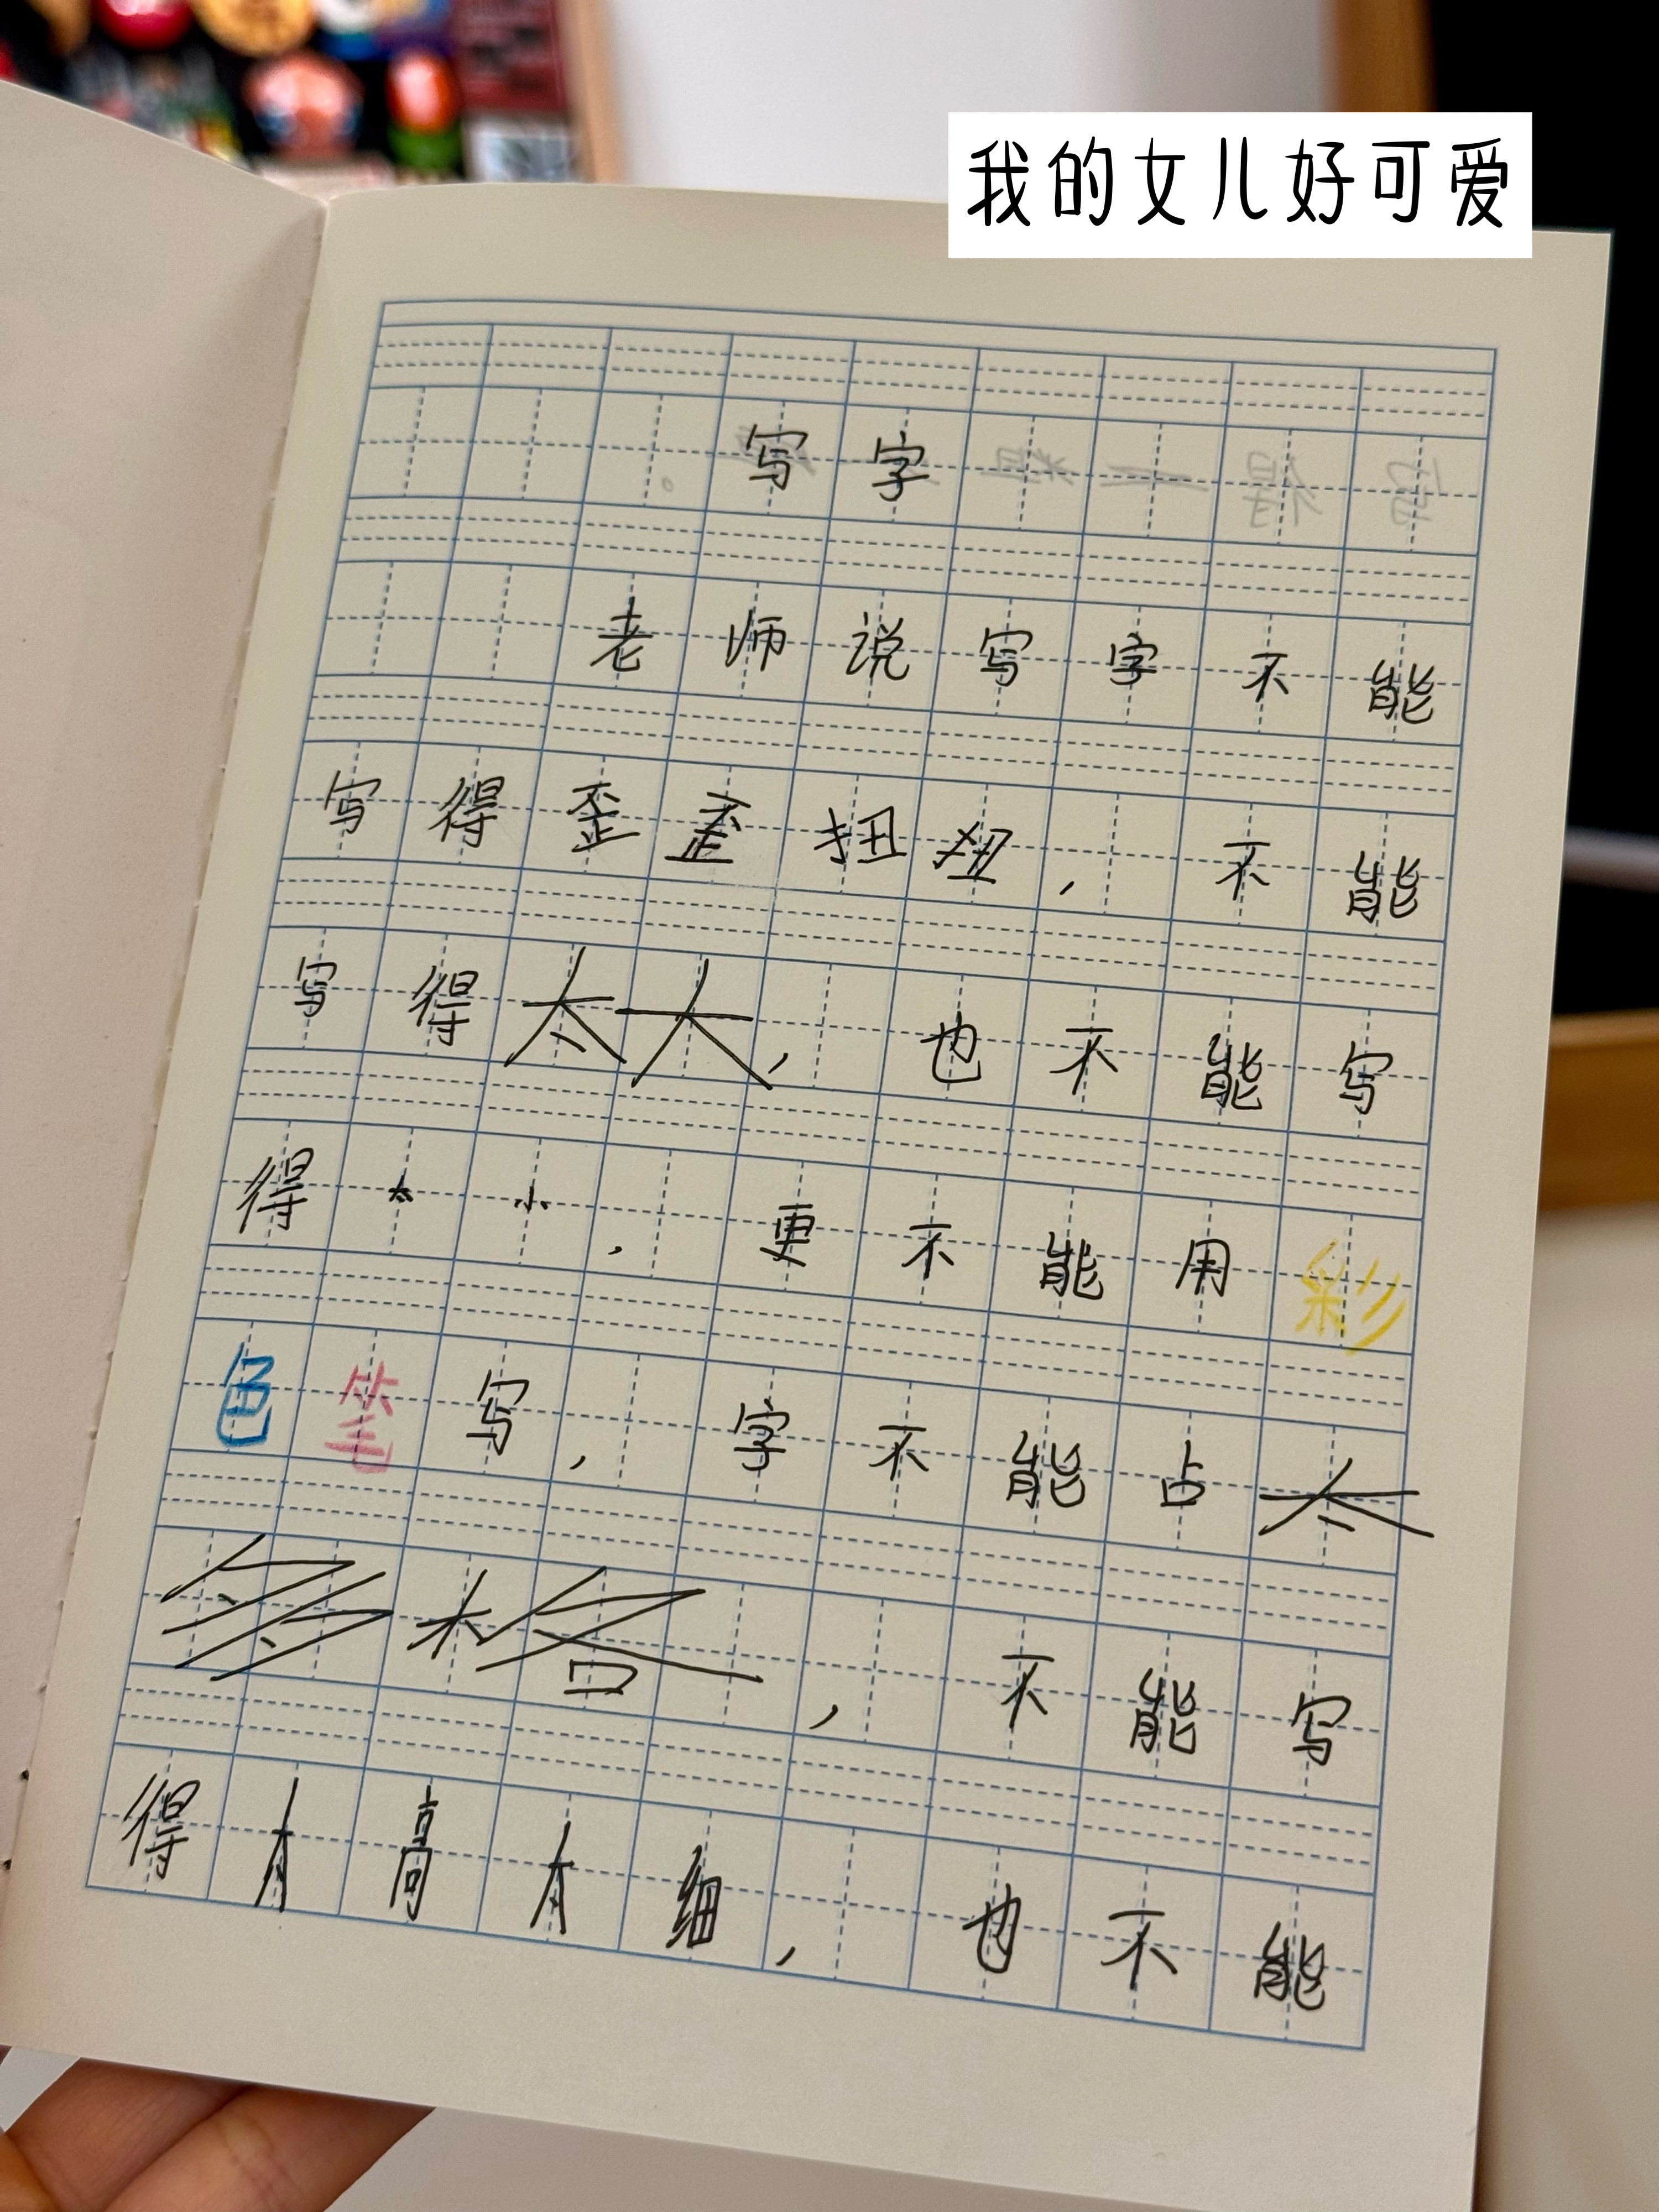 我的女儿好可爱
写字
老师说写字不能
写得歪歪扭扭，不能
写得太大，也不能写
得太小，更不能用彩
色笔写，字不能占太
多格，不能写
得太高太细，也不能